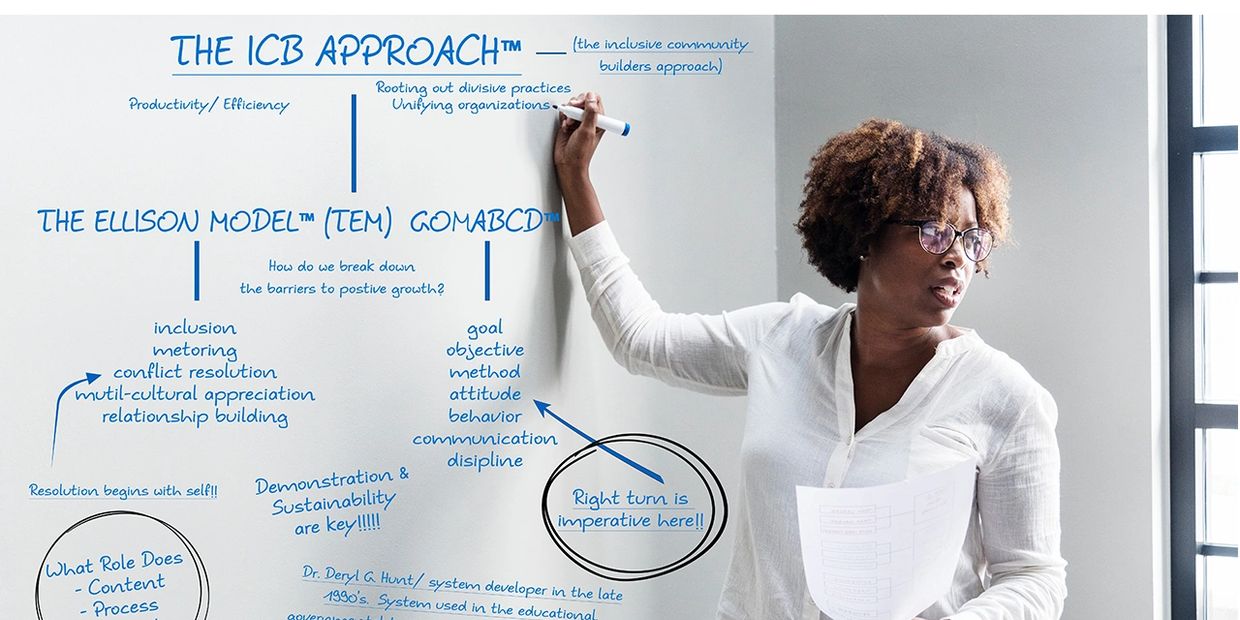 THE ICB APPROACH™ — (the inclusive community
builders approach)
Productivity/ Efficiency
Rooting out divisive practices
Unifying organizations
THE ELLISON MODEL™ (TEM) GOMABCD™
How do we break down
the barriers to postive growth?
inclusion
metoring
conflict resolution
mutil-cultural appreciation
relationship building
goal
objective
method
attitude
behavior
communication
disipline
Resolution begins with self!!
Demonstration &
Sustainability
are key!!!!!
Right turn is
imperative here!!
What Role Does
- Content
- Process
Dr. Deryl G. Hunt/ system developer in the late
1990's. System used in the educational,